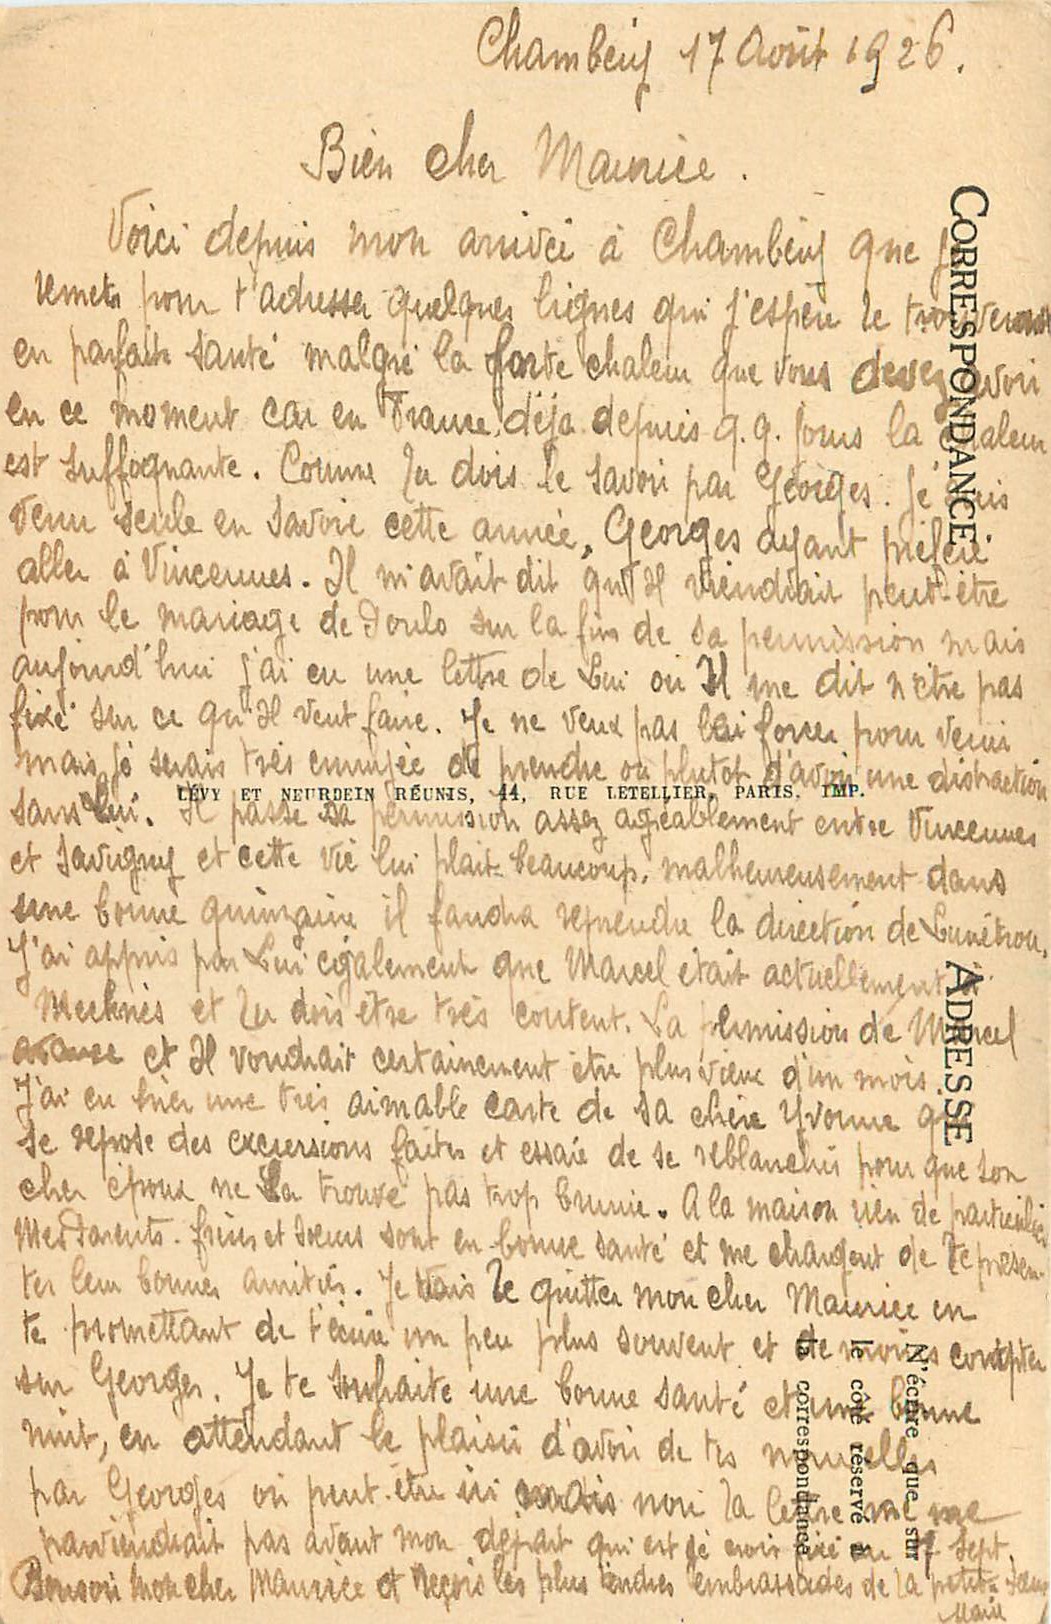 Chambéry 17 Août 1926.
Bien cher Maurice.
Voici depuis mon arrivée à Chambéry que je
remets pour t'adresser quelques lignes qui j'espère te trouveront
en parfaite santé malgré la forte chaleur que vous devez avoir
en ce moment car en France déjà depuis q.q. jours la chaleur
est suffoquante. Comme tu dois le savoir par Georges. Je suis
venu seule en Savoie cette année, Georges ayant préféré
aller à Vincennes. Il m'avait dit qu'Il viendrait peut-être
pour le mariage de Loulo sur la fin de sa permission mais
aujourd'hui j'ai eu une lettre de Lui où Il me dit n'être pas
fixé sur ce qu'Il veut faire. Je ne veux pas le forcer pour venir
mais je serais très ennuyée de prendre ou plutôt d'avoir une distraction
sans Lui. Il passe sa permission assez agréablement entre Vincennes
et Savigny et cette vie lui plait beaucoup, malheureusement dans
une bonne quinzaine il faudra reprendre la direction de
J'ai appris par Lui également que Marcel était actuellement à
Meknès et tu dois être très content. La permission de Marcel
avance et Il voudrait certainement être plus vieux d'un mois.
J'ai eu hier une très aimable carte de ta chère Yvonne qui
se repose des excursions faites et essaie de se reblanchir pour que son
cher époux ne La trouve pas trop brunie. A la maison rien de particulier
Mes Parents. frères et soeurs sont en bonne santé et me chargent de te présen-
ter leur bonnes amitiés. Je vais te quitter mon cher Maurice en
te promettant de t'écrire un peu plus souvent et de moins compter
sur Georges. Je te souhaite une bonne santé et une bonne
nuit, en attendant le plaisir d'avoir de tes nouvelles
par Georges ou peut-être ici mais non ta lettre ne me
parviendrait pas avant mon départ qui est je crois fixé au 7 Sept.
Bonsoir mon cher Maurice et reçois les plus tendres embrassades de ta petite soeur
Marie
CORRESPONDANCE
ADRESSE
LÉVY ET NEURDEIN RÉUNIS, 44, RUE LETELLIER, PARIS. IMP.
N'écrire que sur
le côté réservé à
la correspondance